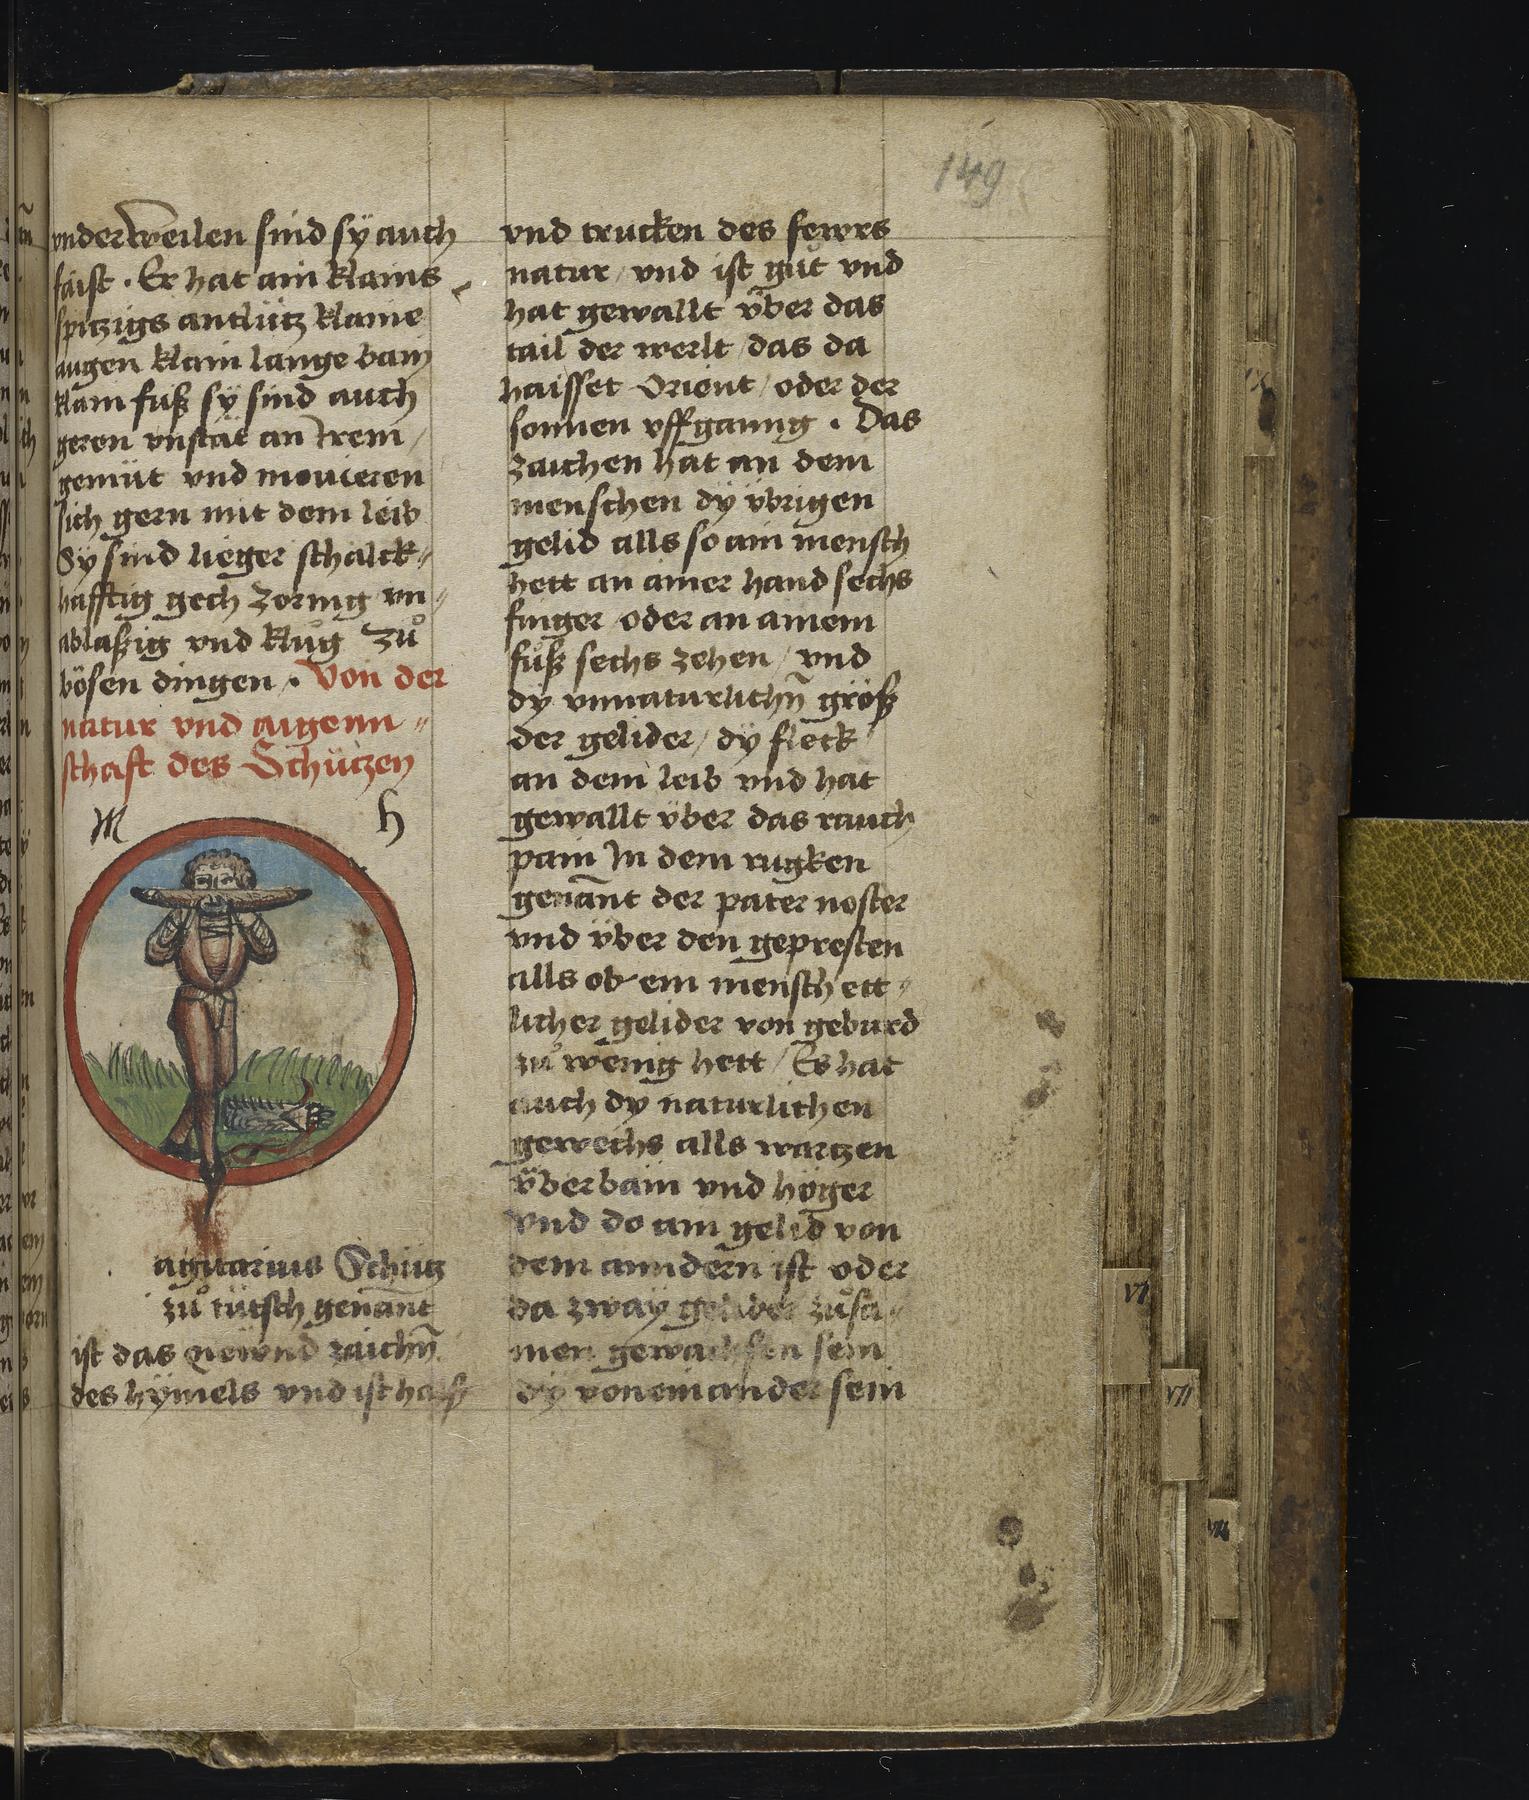 149
vnderweilen sind sÿ auch
faist · Er hat ain klains
spitzigs antlütz klaine
augen klain lange bain
klain fuß sÿ sind auch
geren vnstät an irem /
gemüt vnd mouieren
sich gern mit dem leib
Sy sind lieger schalck〃
hafftig gech zornig vn〃
ablaßig vnd klůg zů
bösen dingen · Von der
natur vnd aigenn〃
schaft des Schützen
M h
agitarius Schütz
zů tütsch genant
ist das newnd zaichn̄
des hÿmels vnd ist haiß
vnd trucken des fewrs
natur / vnd ist gůt vnd
hat gewallt v̈ber das
tail der werlt / das da
haisset Orient / oder der
sonnen vffganng · Das
zaichen hat an dem
menschen dÿ v̈brigen
gelid alls so ain mensch
hett an ainer hand sechs
finger / oder an ainem
fůß sechs zehen / vnd
dy vnnaturlichn̄ größ
der gelider / dÿ fleck
an dem leib vnd hat
gewallt v̈ber das rauch
pain In dem rugken
genān̄t der pater noster
vnd v̈ber den gepresten
alls ob ein mensch ett〃
licher gelider von geburd
zů wenig hett / Es hat
auch dy naturlichen
gewechs alls wartzen
v̈berbain vnd höger
Vnd do ain gelid von
dem anndern ist oder
da zwaÿ gelider zůsa〃
men gewachsen sein
dÿ von einander sein
VI
VII